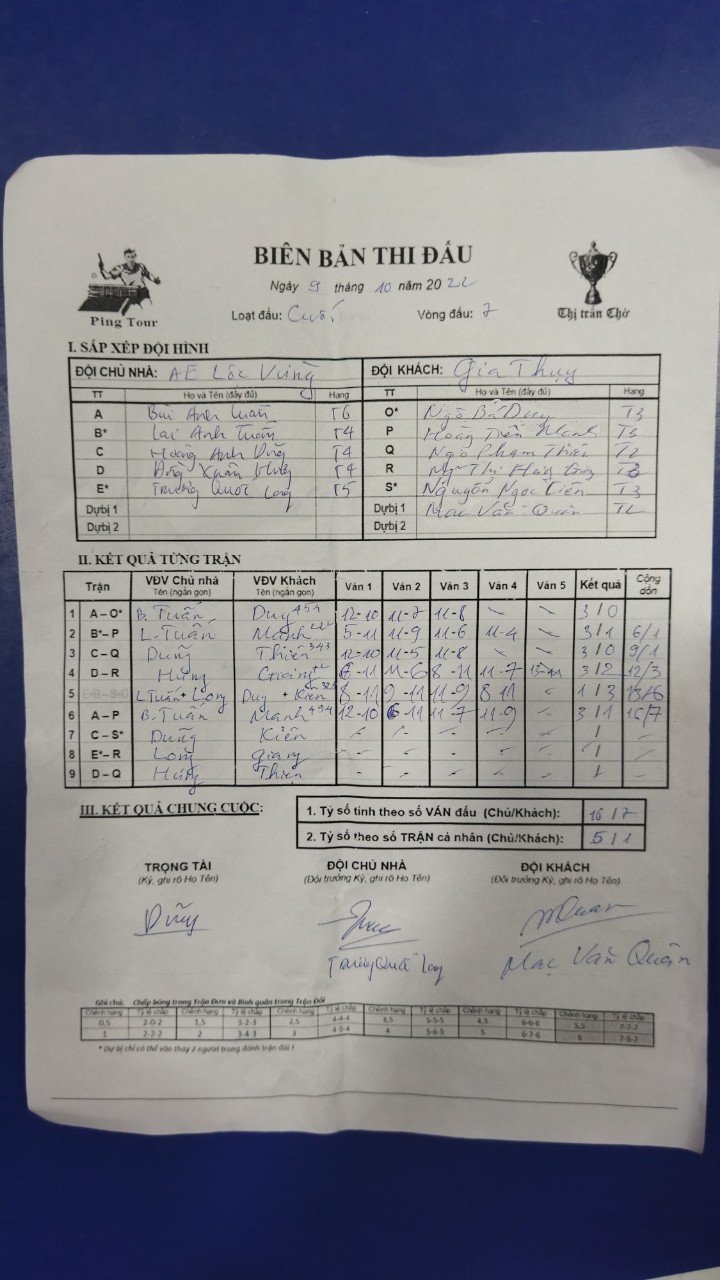 BIÊN BẢN THI ĐẤU
Ping Tour
Thị trấn Chờ
Ngày 9 tháng 10 năm 2022
Loạt đấu: Cuối Vòng đấu: 7
I. SẮP XẾP ĐỘI HÌNH
ĐỘI CHỦ NHÀ: AE Lộc Vừng ĐỘI KHÁCH: Gia Thụy
TT Họ và Tên (đầy đủ) Hạng TT Họ và Tên (đầy đủ) Hạng
A Bùi Anh Tuấn T6 O* Ngô Bá Duy T3
B* Lại Anh Tuấn T4 P Hoàng Tiến Mạnh T3
C Hoàng Anh Dũng T4 Q Ngô Phạm Thiên T2
D Đồng Xuân Hưng T4 R
E* Trương Quốc Long T5 S* Nguyễn Ngọc Kiên T3
Dự bị 1 Mạc Văn Quân T2
Dự bị 2 Dự bị 2
II. KẾT QUẢ TỪNG TRẬN
Trận VĐV Chủ nhà Tên (ngắn gọn) VĐV Khách Tên (ngắn gọn) Ván 1 Ván 2 Ván 3 Ván 4 Ván 5 Kết quả Cộng dồn
1 A – O* B. Tuấn Duy 454 12-10 11-7 11-8 - - 3/0
2 B* – P L. Tuấn Mạnh 222 5-11 11-9 11-6 11-4 - 3/1 6/1
3 C – Q Dũng Thiên 343 12-10 11-5 11-8 - - 3/0 9/1
4 D – R Hưng Giang 8-11 11-6 8-11 11-7 13-11 3/2 12/3
5 L.Tuấn + Long Duy + Kiên 8-11 9-11 11-9 8-11 - 1/3 13/6
6 A – P B. Tuấn Mạnh 454 12-10 6-11 11-7 11-9 - 3/1 16/7
7 C – S* Dũng Kiên - - - - - / -
8 E* – R Long Giang - - - - - / -
9 D – Q Hưng Thiên - - - - - / -
III. KẾT QUẢ CHUNG CUỘC:
1. Tỷ số tính theo số VÁN đấu (Chủ/Khách): 16/7
2. Tỷ số theo số TRẬN cá nhân (Chủ/Khách): 5/1
TRỌNG TÀI ĐỘI CHỦ NHÀ ĐỘI KHÁCH
(Ký, ghi rõ Họ Tên) (Đội trưởng Ký, ghi rõ Họ Tên) (Đội trưởng Ký, ghi rõ Họ Tên)
Dũng
Trương Quốc Long Mạc Văn Quân
Ghi chú: Chấp bóng trong Trận Đơn và Bình quân trong Trận Đôi
Chênh hạng Tỷ lệ chấp Chênh hạng Tỷ lệ chấp Chênh hạng Tỷ lệ chấp Chênh hạng Tỷ lệ chấp Chênh hạng Tỷ lệ chấp Chênh hạng Tỷ lệ chấp
0,5 2-0-2 1,5 3-2-3 2,5 4-4-4 3,5 5-5-5 4,5 6-6-6 5,5 7-7-7
1 2-2-2 2 3-4-3 3 4-5-4 4 5-6-5 5 6-7-6 6 7-8-7
* Dự bị chỉ có thể vào thay 2 người trong đánh trận đôi !